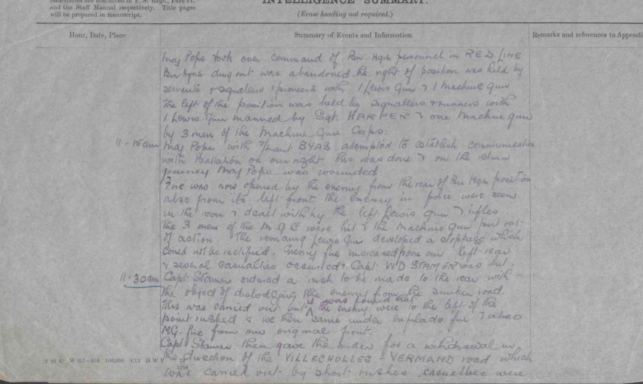 and the Staff Manual respectively. Title pages
will be prepared in manuscript.
INTELLIGENCE SUMMARY.
(Erase heading not required.)
Hour, Date, Place
Summary of Events and Information
Remarks and references to Appendi
Maj Pope took over command of Bn Hqrs personnel in RED LINE
Bn Hqrs dug out was abandoned the right of position was held by
servants & signallers & pioneers with 1 Lewis Gun & 1 Machine gun
The left of the position was held by signallers & runners with
1 Lewis Gun manned by Sgt HARPER & one Machine gun
by 3 men of the Machine Gun Corps.
11-15am Maj Pope with attempted to establish communication
with Battalion on our right this was done & on the
journey Maj Pope was wounded
Fire was now opened by the enemy from the rear of Bn Hqrs position
also from its left front the enemy in force were seen
in the & dealt with by the left Lewis Gun & rifles
the 3 men of the M.G.C were hit & the Machine Gun put out
of action. The remaining Lewis Gun developed a stoppage which
could not be rectified. Enemy fire increased from our left rear
& several casualties occurred Capt W D was hit
11-30am Capt ordered a rush to be made to the rear with
the object of dislodging the enemy from the sunken road.
This was carried out but it was found that the enemy were to the left of the
point rushed & we then came under enfilade fire & also
MG fire from our original front.
Capt then gave the order for a withdrawal in
the direction of the VILLECHOLLES - VERMAND road which
was carried out by short rushes casualties were